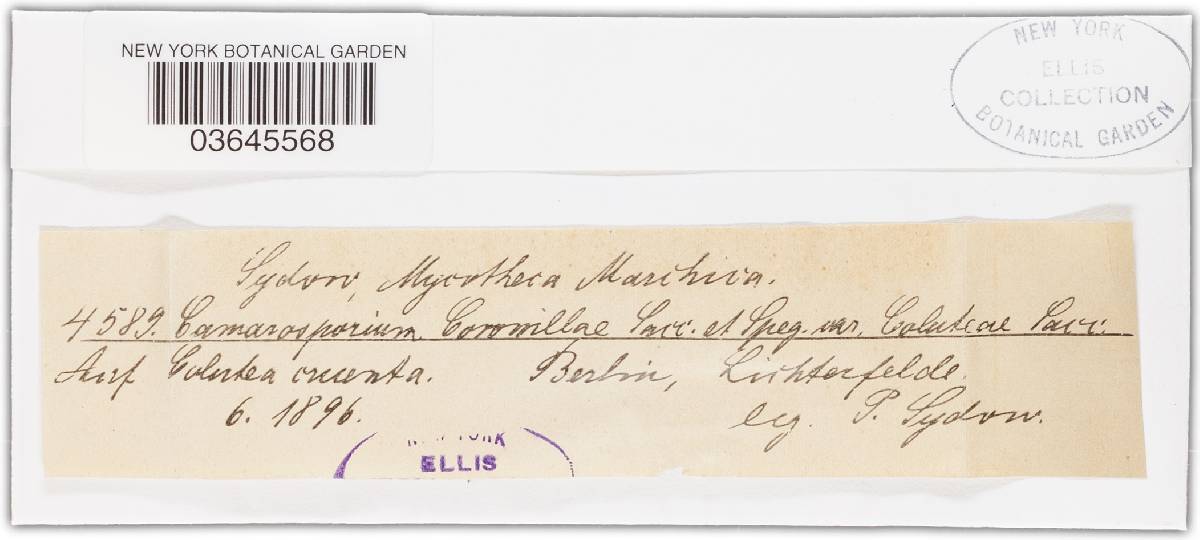 NEW YORK BOTANICAL GARDEN
03645568
NEW YORK
ELLIS
COLLECTION
BOTANICAL GARDEN
Sydow, Mycotheca Marchica.
4589. Camarosporium Coronillae Sacc. et Speg. var. Coluteae Sacc.
Auf Colutea cruenta. Berlin, Lichterfelde.
6. 1896. leg. P. Sydow.
NEW YORK
ELLIS